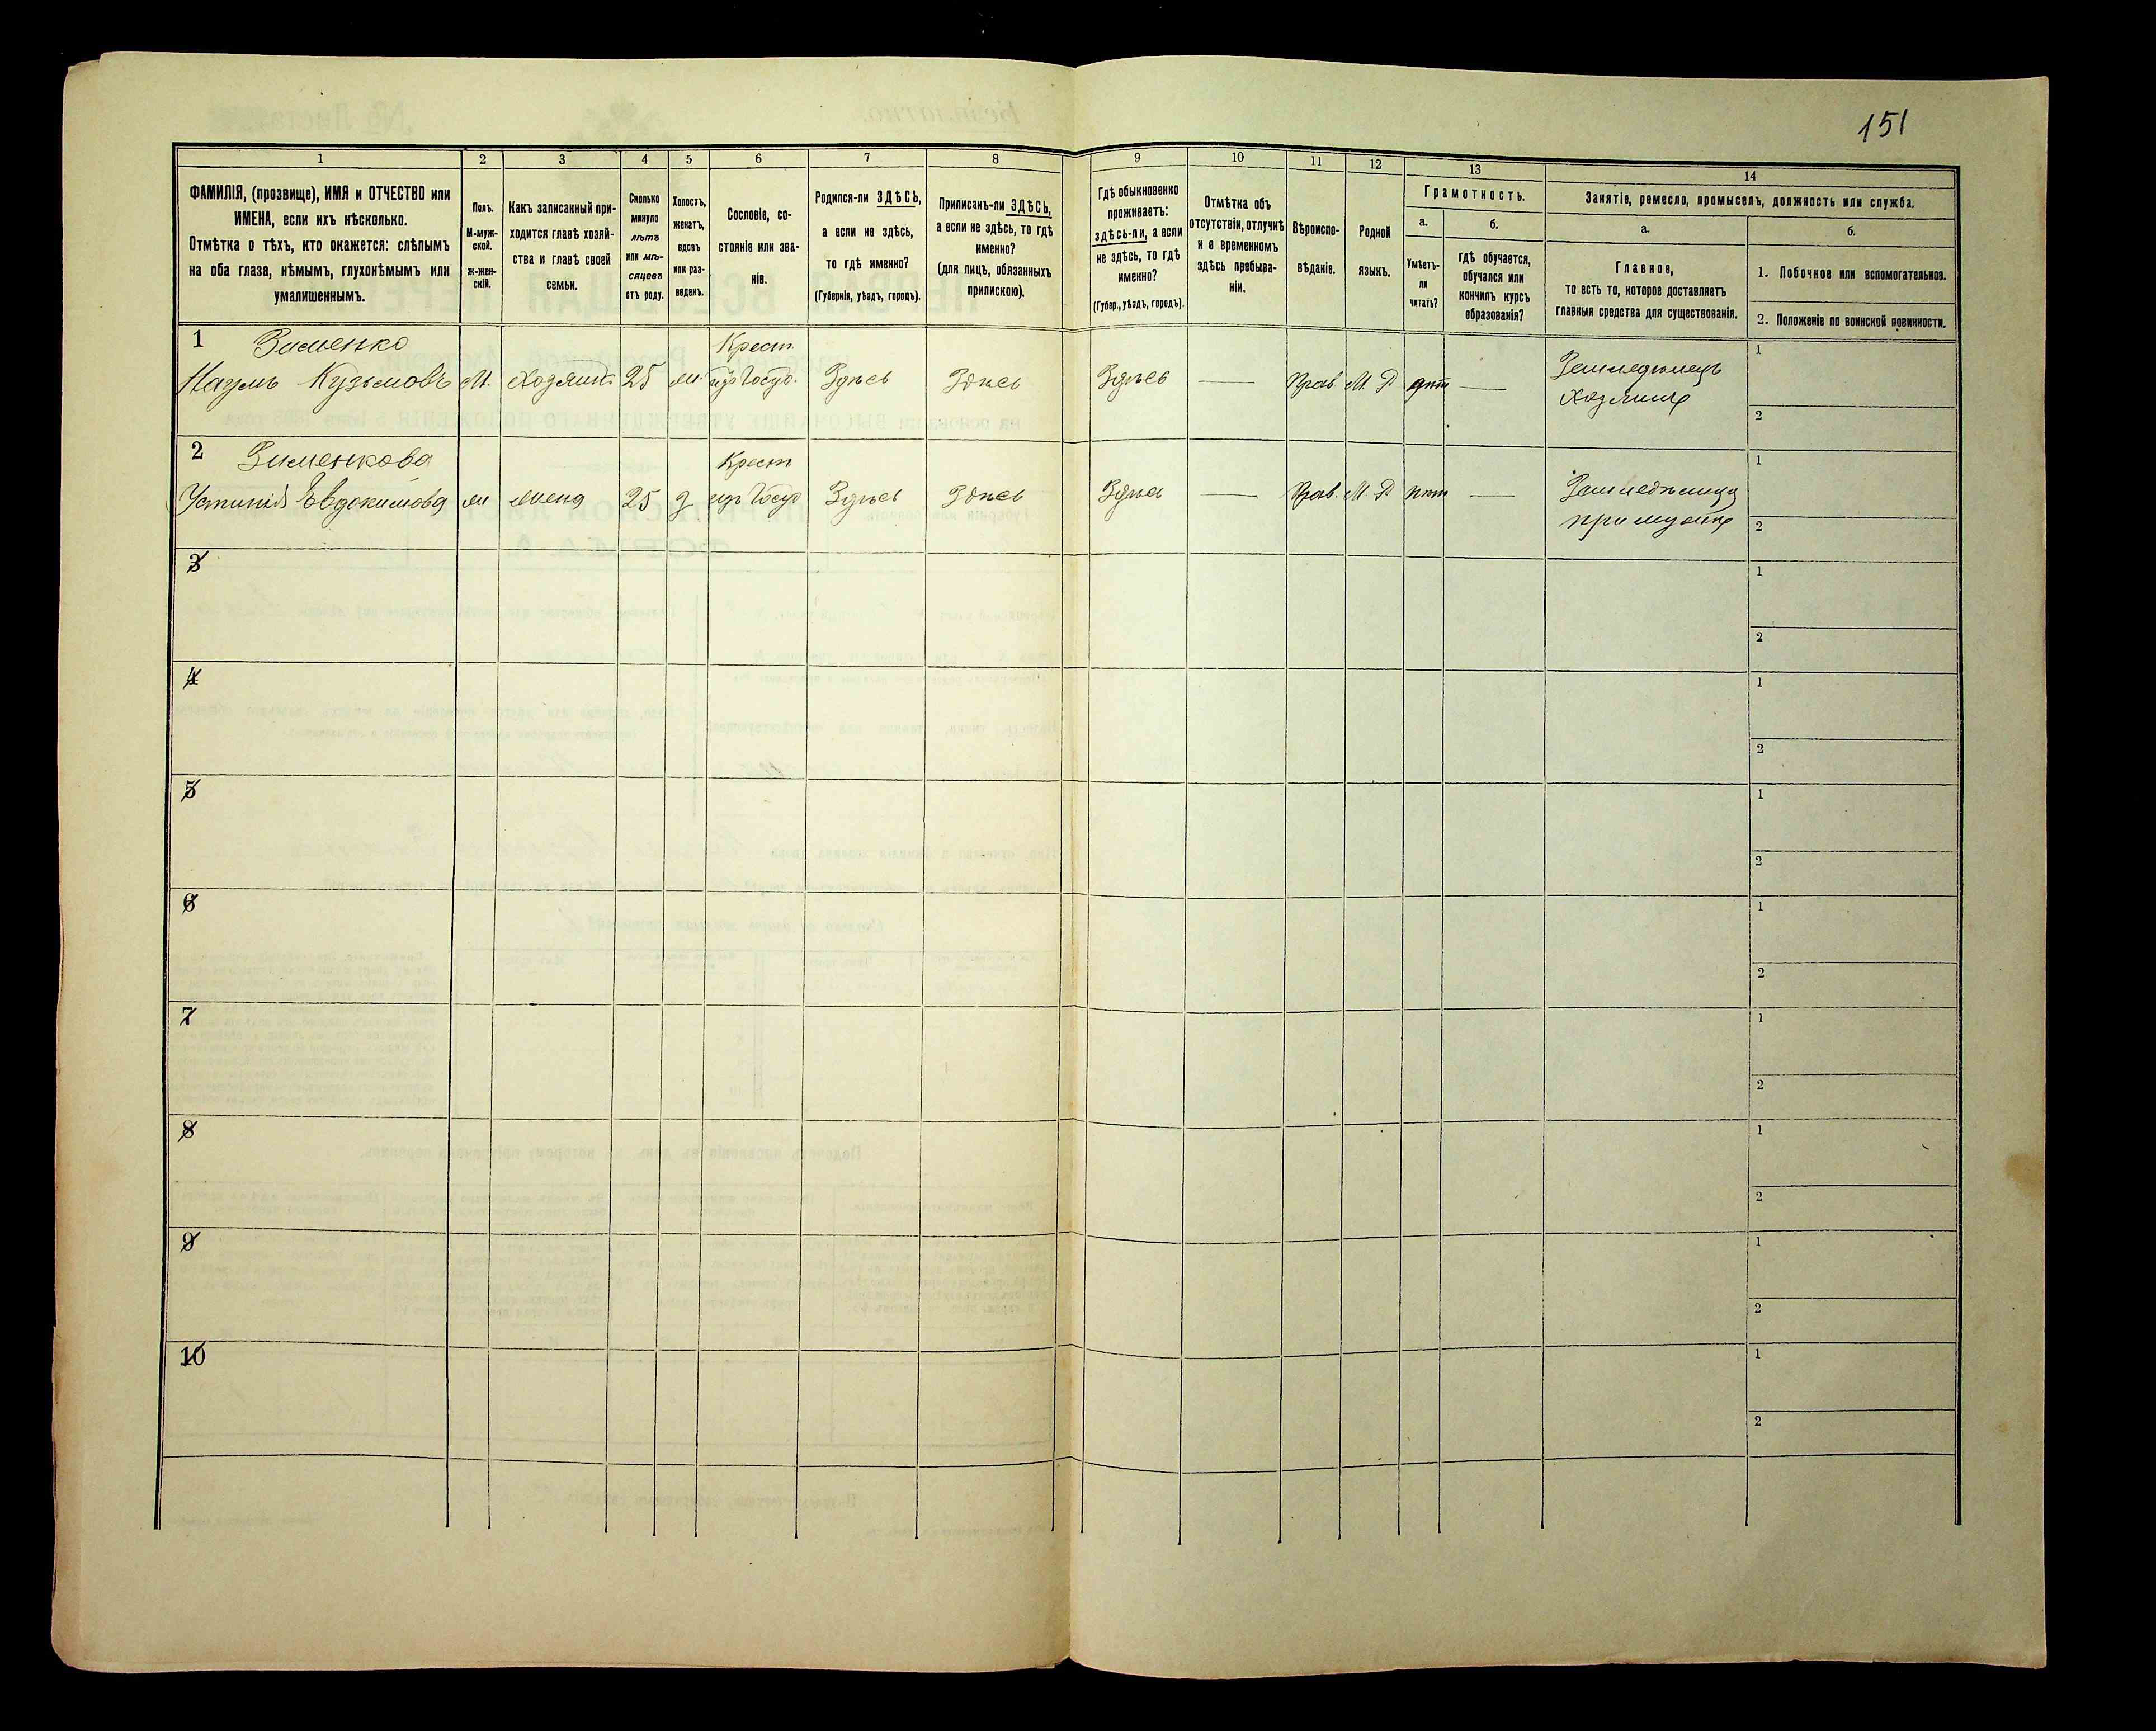 151
1 2 3 4 5 6 7 8 9 10 11 12 13 14
ФАМИЛІЯ, (прозвище), ИМЯ и ОТЧЕСТВО или
ИМЕНА, если ихъ нѣсколько.
Отмѣтка о тѣхъ, кто окажется: слѣпымъ
на оба глаза, нѣмымъ, глухонѣмымъ или
умалишеннымъ.
Полъ.
М-муж-
ской.
ж-жен-
скій.
Какъ записанный при-
ходится главѣ хозяй-
ства и главѣ своей
семьи.
Сколько
минуло
лѣтъ
или мѣ-
сяцевъ
отъ роду.
Холостъ,
женатъ,
вдовъ
или раз-
веденъ.
Сословіе, со-
стояніе или зва-
ніе.
Родился-ли ЗДѢСЬ,
а если не здѣсь,
то гдѣ именно?
(Губернія, уѣздъ, городъ).
Приписанъ-ли ЗДѢСЬ,
а если не здѣсь, то гдѣ
именно?
(для лицъ, обязанныхъ
припискою).
Гдѣ обыкновенно
проживаетъ:
здѣсь-ли, а если
не здѣсь, то гдѣ
именно?
(Губер., уѣздъ, городъ).
Отмѣтка объ
отсутствіи, отлучкѣ
и о временномъ
здѣсь пребыва-
ніи.
Вѣроиспо-
вѣданіе.
Родной
языкъ.
Грамотность.
а.
Умѣетъ-
ли
читать?
б.
гдѣ обучается,
обучался или
кончилъ курсъ
образованія?
Занятіе, ремесло, промыселъ, должность или служба.
а.
Главное,
то есть то, которое доставляетъ
главныя средства для существованія.
б.
1. Побочное или вспомогательное.
2. Положеніе по воинской повинности.
1 Зименко Крест. Земледѣлецъ 1
Наумъ Кузьмовъ М. хозяинъ 25 ж. изъ Госуд. Здѣсь Здѣсь Здѣсь — Прав М. Р — хозяинъ 2
2 Зименкова Крест 1
Устинія Евдокимова ж жена 25 з изъ Госуд Здѣсь Здѣсь Здѣсь — Прав. М. Р нѣт — Земледѣлица
при мужѣ 2
3 1
2
4 1
2
5 1
2
6 1
2
7 1
2
8 1
2
9 1
2
10 1
2